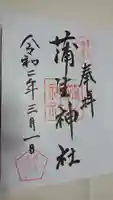 奉拝
蒲生神社
令和二年三月一日